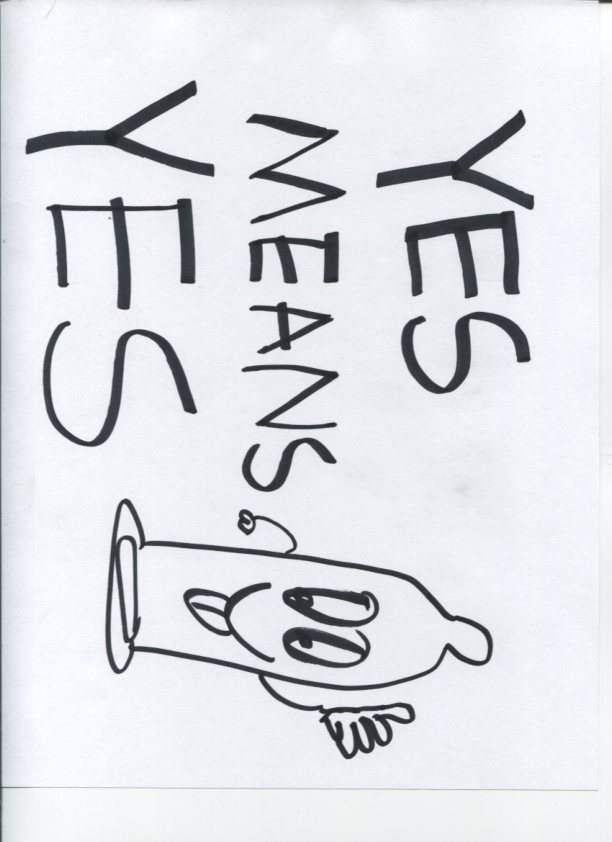 YES
MEANS
YES